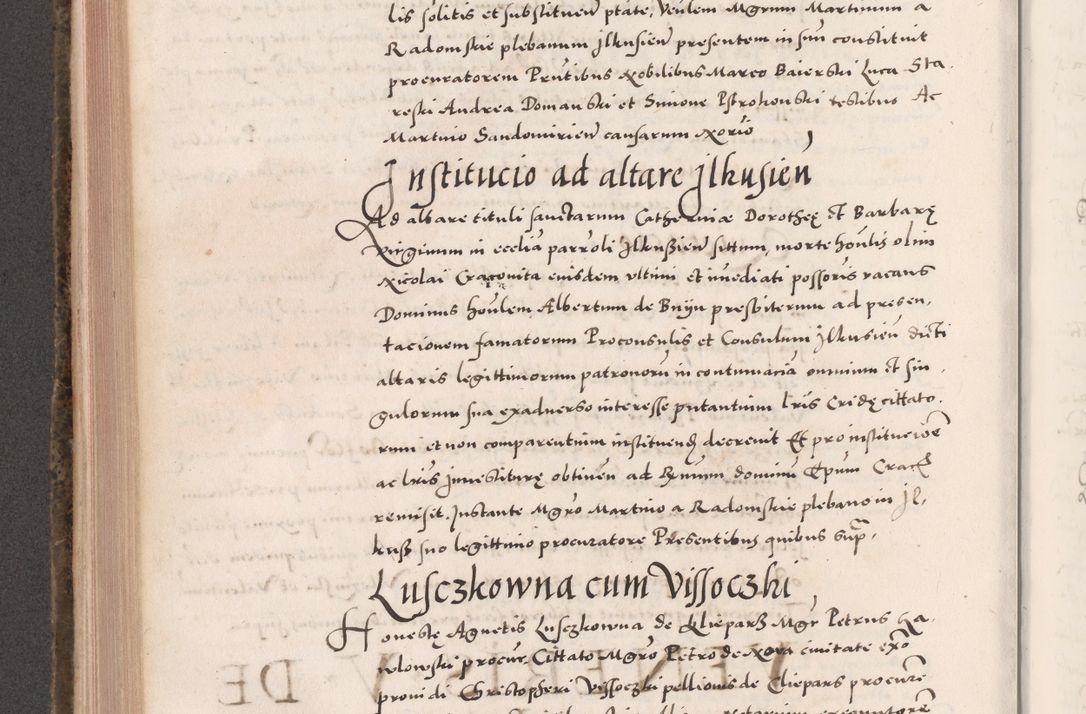 lis solitis et substituen ptate, Venlem Mgrum Martinum a
Radomskie plebanum Jlkusien presentem in sui constituit
procuratorem Prntibus Nobilibus Marco Baierski Luca Sta
reski Andrea Domanski et Simone Pstrokonski testibus Ac
Martino Sandomirien causarum Norio
Institucio ad altare Jlkusien
Ad altare tituli sanctarum Catherinæ Dorotheę et Barbarę
Virginum in ecclia parroli Jlkusien situm, morte honlis olim
Nicolai Cracovita eiusdem ultimi et imediati possoris vacans
Dominus honlem Albertum de Bnin presbiterum ad presen,
tacionem famatorum Proconsulis et Consulum Jlkusien dicti
altaris legittimorum patronorum in contumacia omnium et sin,
gulorum sua exadverso interesse putantium lris Cridę cittato,
rum et non comparentium instituend decrevit Et pro institucione
ac lris Investiturę obtinen ad Rmum dominu Epum Crac
remisit. Instante Mgro Martino a Radomskie plebano in Jl,
kuss suo legittimo procuratore Presentibus quibus supra,
Lusczkowna cum Vissoczki
Honestę Agnetis Lusczkowna de Klieparz Mgr Petrus Ka,
wlowski procur. Cittato Mgro Petro de Nova civitate exo
providi Christopheri Vissoczki pellionis de Clieparz procure
DE